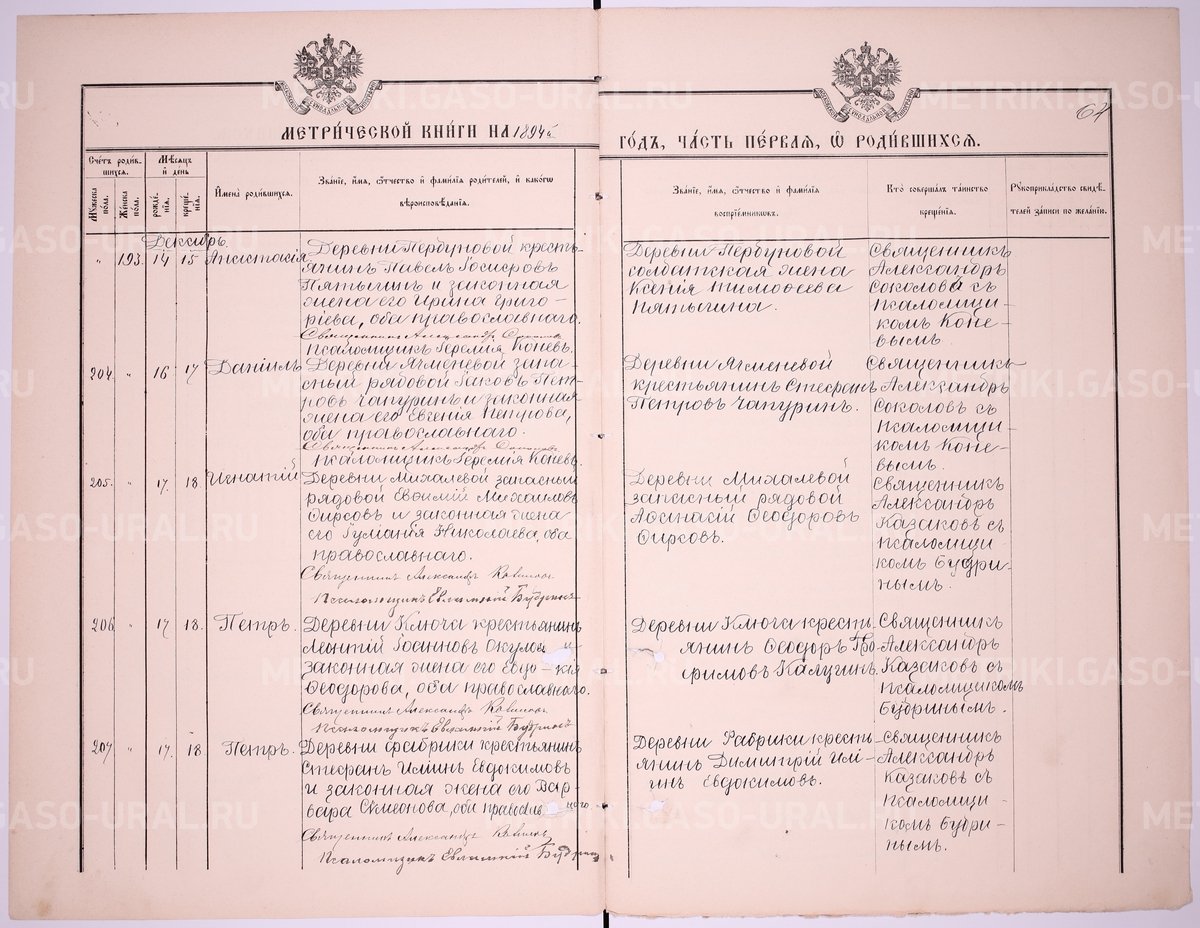 МЕТРИ́ЧЕСКОЙ КНИ́ГИ НА 1894й
ГО́ДЪ, ЧА́СТЬ ПЕ́РВАЯ, Ѿ РОДИ́ВШИХСѦ.
64
Сче́тъ роди́в-
шихсѧ.
Мѣсѧцъ
и́ день
Мꙋжеска по́ла.
Же́нска по́ла.
рожде́-
нїѧ.
креще́-
нїѧ.
И́мена̀ роди́вшихсѧ.
Зва́нїе, и́мѧ, ѻ҆́тчество и҆ фами́лїѧ роди́телей, и҆ како́гѡ
вѣроисповѣ́данїѧ.
Зва́нїе, и́мѧ, ѻ҆́тчество и҆ фами́лїѧ
воспрїе́мниковъ.
Кто̀ соверша́лъ та́инство
креще́нїѧ.
Рꙋкоприкла́дство свидѣ́-
телей за́писи по жела́нїю.
Декабрь.
" 193. 14 15 Анастасія
Деревни Первуновой кресть-
янинъ Павелъ Іосифовъ
Пятыгинъ и законная
жена его Ирина Григо-
ріева, оба православнаго.
Священникъ Александръ Соколовъ
Псаломщикъ Іеремія Коневъ.
Деревни Первуновой
солдатская жена
Ксенія Тимофеева
Пятыгина.
Священникъ
Александръ
Соколовъ съ
псаломщи-
комъ Коне-
вымъ.
204 " 16 17 Даніилъ
Деревни Ячменевой запа-
сный рядовой Іаковъ Пет-
ровъ Чапуринъ и законная
жена его Евгенія Петрова,
оба православнаго.
Священникъ Александръ Соколовъ
Псаломщикъ Іеремія Коневъ.
Деревни Ячменевой
крестьянинъ Стефанъ
Петровъ Чапуринъ.
Священникъ
Александръ
Соколовъ съ
псаломщи-
комъ Коне-
вымъ.
205. " 17 18 Игнатій
Деревни Михалевой запасный
рядовой Евѳимій Михаиловъ
Ѳирсовъ и законная жена
его Іуліанія Николаева, оба
православнаго.
Священникъ Александръ Казаковъ
Псаломщикъ Евлампій Будринъ
Деревни Михалевой
запасный рядовой
Аѳанасій Ѳеодоровъ
Ѳирсовъ.
Священникъ
Александръ
Казаковъ съ
псаломщи-
комъ Будри-
нымъ.
206 " 17 18. Петръ.
Деревни Ключа крестьянинъ
Леонтій Іоанновъ Окуловъ и
законная жена его Евдокія
Ѳеодорова, оба православнаго.
Священникъ Александръ Казаковъ
Псаломщикъ Евлампій Будринъ
Деревни Ключа кресть-
янинъ Ѳеодоръ
Калугинъ.
Священникъ
Александръ
Казаковъ съ
псаломщикомъ
Будринымъ.
207 " 17. 18 Петръ.
Деревни Фабрики крестьянинъ
Стефанъ Иліинъ Евдокимовъ
и законная жена его Вар-
вара Симеонова, оба православнаго.
Священникъ Александръ Казаковъ
Псаломщикъ Евлампій Будринъ
Деревни Фабрики кресть-
янинъ Димитрій Илі-
инъ Евдокимовъ.
Священникъ
Александръ
Казаковъ съ
псаломщи-
комъ Будри-
нымъ.
METRIKI.GASO-URAL.RU